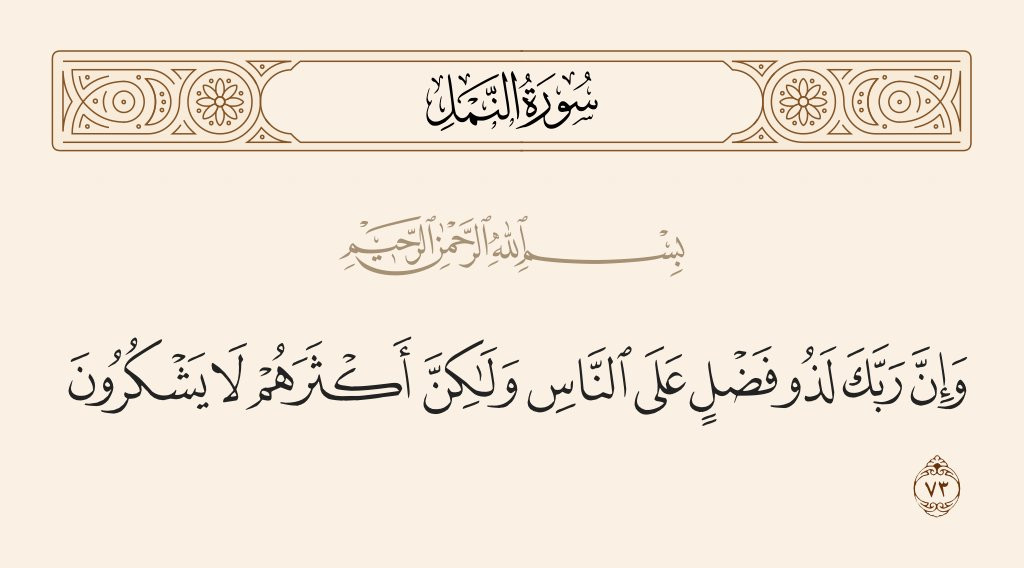 سُورَةُ النَّمْلِ
بِسْمِ ٱللَّهِ ٱلرَّحْمَٰنِ ٱلرَّحِيمِ
وَإِنَّ رَبَّكَ لَذُو فَضْلٍ عَلَى ٱلنَّاسِ وَلَٰكِنَّ أَكْثَرَهُمْ لَا يَشْكُرُونَ
٧٣